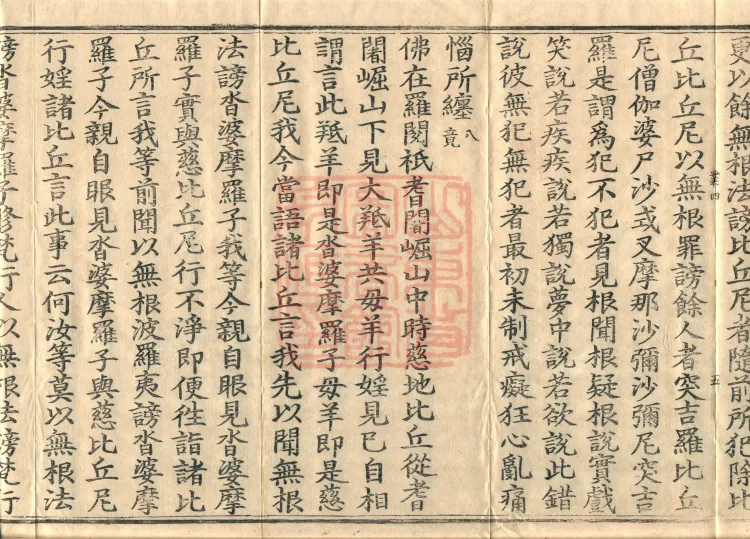 更以餘無根法謗比丘尼者隨前所犯除比
丘比丘尼以無根罪謗餘人者突吉羅比丘
業四
五
尼僧伽婆尸沙式叉摩那沙彌沙彌尼突吉
羅是謂為犯不犯者見根聞根疑根說實戲
笑說若疾疾說若獨說夢中說若欲說此錯
說彼無犯無犯者最初未制戒癡狂心亂痛
惱所纏八竟
佛在羅閱祇耆闍崛山中時慈地比丘從耆
闍崛山下見大羝羊共母羊行婬見已自相
謂言此羝羊即是沓婆摩羅子母羊即是慈
比丘尼我今當語諸比丘言我先以聞無根
法謗沓婆摩羅子我等今親自眼見沓婆摩
羅子實與慈比丘尼行不淨即便徃詣諸比
丘所言我等前聞以無根波羅夷謗沓婆摩
羅子今親自眼見沓婆摩羅子與慈比丘尼
行婬諸比丘言此事云何汝等莫以無根法
謗沓婆摩羅子修梵行人以無根法謗梵行